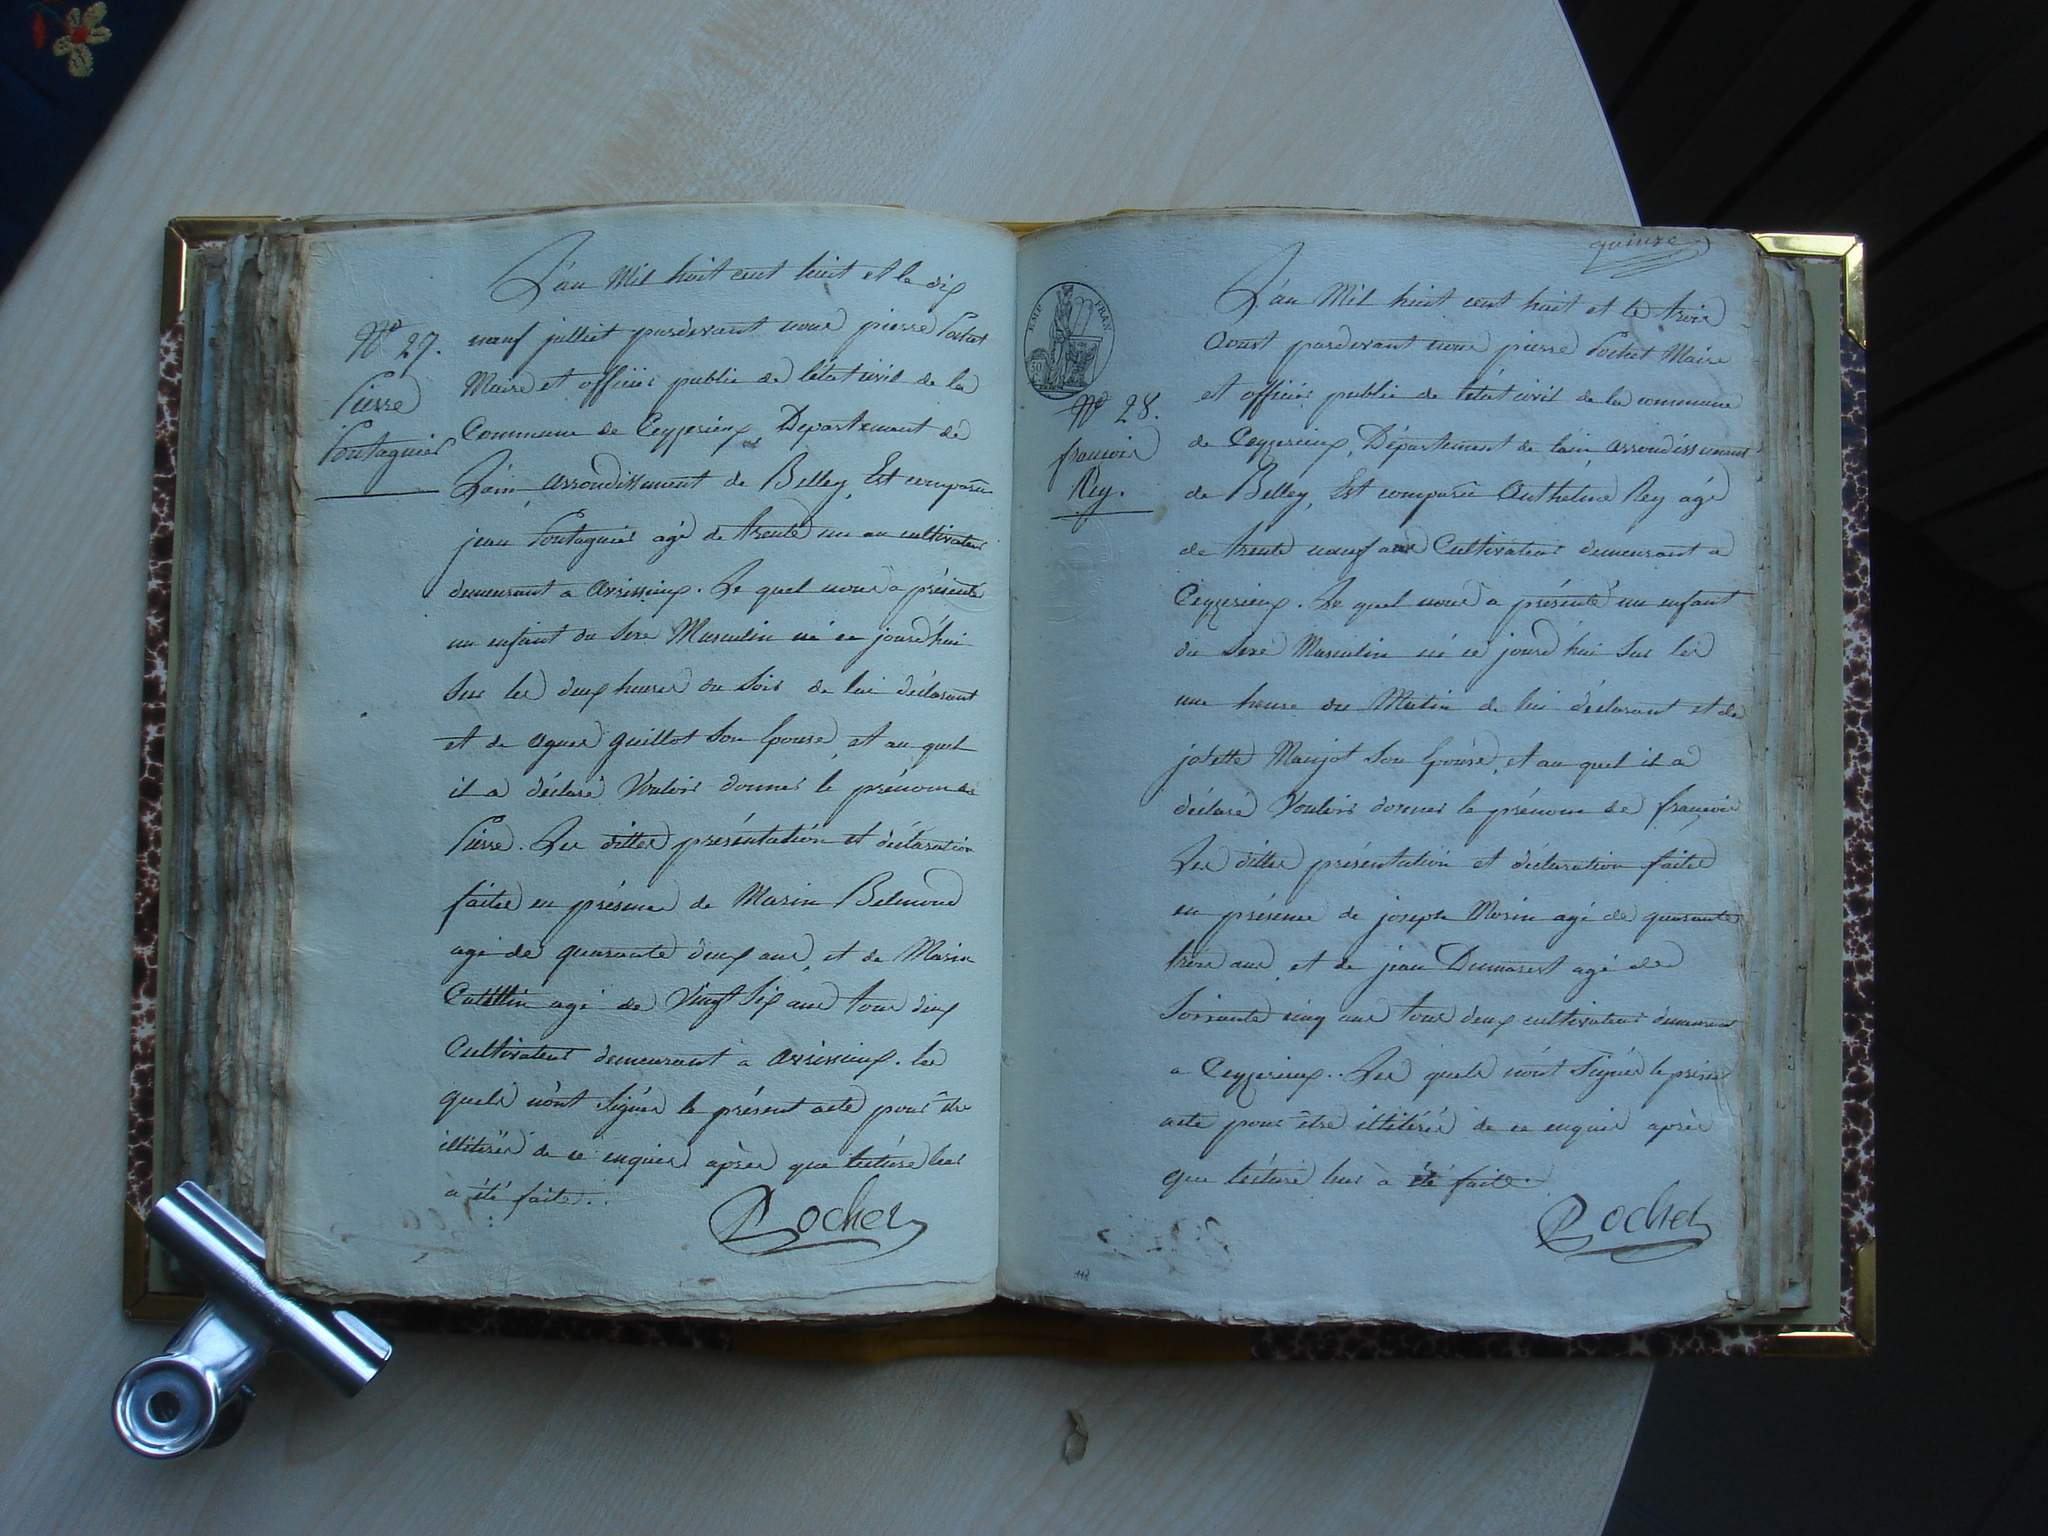 L'an Mil huit cent huit et le dix
N° 27.
neuf juillet pardevant nous pierre Pochet
Pierre
Maire et officier public de l'état civil de la
Pontagnier
Commune de Ceyzerieux, Departement de
L'ain arrondissement de Belley, Est comparu
jean Pontagnier agé de trente un an cultivateur
demeurant a avrissieux. Le quel nous a présenté
un enfant du sexe Masculin né ce jourd'hui
sur les deux heures du soir de lui déclarant
et de agnes guillot son épouse, et au quel
il a déclaré Vouloir donner le prénom de
Pierre. Les dittes présentation et déclaration
faites en présence de Marin Belmond
agé de quarante deux ans, et de Marin
agé de Vingt six ans tous deux
Cultivateurs demeurant a avrissieux. les
quels n'ont signés le présent acte pour être
illitérés de ce enquis après que lecture leur
a été faite.
Pochet
quinze
EMP FRAN
50
L'an Mil huit cent huit et le trois
Aoust pardevant nous pierre Pochet Maire
N° 28.
et officier public de l'état civil de la commune
françois
de Ceyzerieux, Département de l'ain arrondissement
Rey.
de Belley, Est comparu Anthelme Rey agé
de trente neuf ans Cultivateur demeurant a
Ceyzerieux. Le quel nous a présenté un enfant
du sexe Masculin né ce jourd'hui sur les
une heure du Matin de lui déclarant et de
josette Maujot son épouse, et au quel il a
déclaré Vouloir donner le prénom de françois
Les dittes présentation et déclaration faites
en présence de joseph Morin agé de quarante
trois ans, et de jean Dumarest agé de
soixante cinq ans tous deux cultivateurs demeurant
a Ceyzerieux. Les quels n'ont signés le présent
acte pour être illitérés de ce enquis après
que lecture leur à été faite.
Pochet